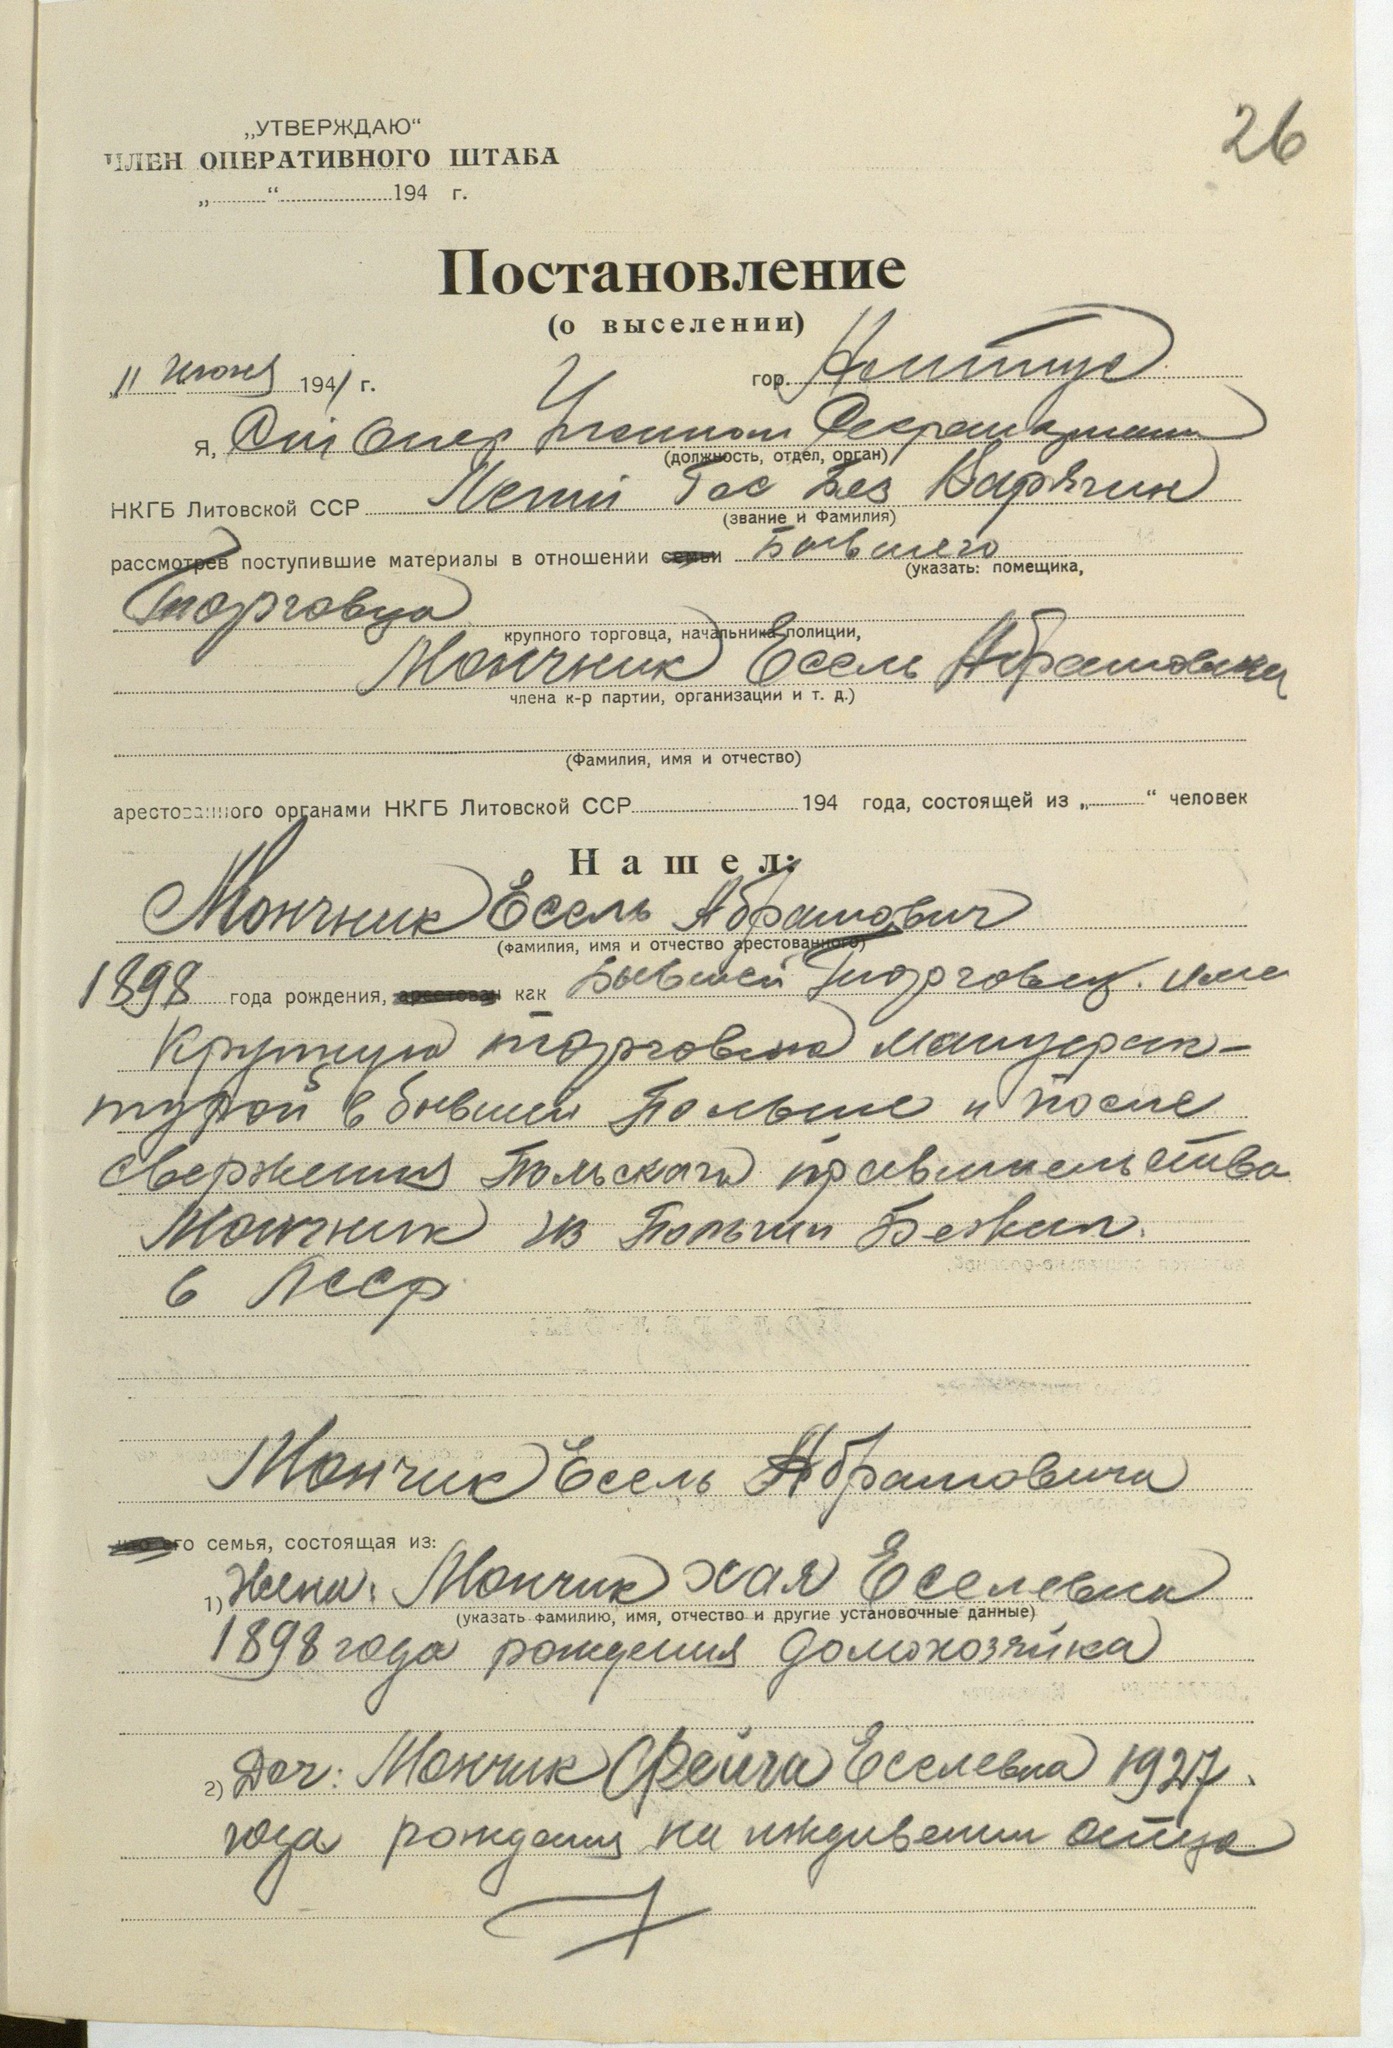 26
„УТВЕРЖДАЮ“
ЧЛЕН ОПЕРАТИВНОГО ШТАБА
„ “ 194 г.
Постановление
(о выселении)
11 июня 1941 г. гор.
я, Ст Опер
(должность, отдел, орган)
НКГБ Литовской ССР Лейт Гос Без
(звание и Фамилия)
рассмотрев поступившие материалы в отношении семьи Бывшего
(указать: помещика,
Торговца
крупного торговца, начальника полиции,
Мончник Есель Абрамовича
члена к-р партии, организации и т. д.)
(Фамилия, имя и отчество)
арестованного органами НКГБ Литовской ССР 194 года, состоящей из „ “ человек
Нашел:
Мончник Есель Абрамович
(фамилия, имя и отчество арестованного)
1898 года рождения, арестован как Бывшей Торговец. име
крупную торговлю мануфак-
турой в бывшей Польше и после
свержения Польского правительства
Мончник из Польши Бежал.
в ЛССР
Мончик Есель Абрамовича
что его семья, состоящая из:
1) Жена: Мончик Хая Еселевна
(указать фамилию, имя, отчество и другие установочные данные)
1898 года рождения домохозяйка
2) Доч: Мончик Фейга Еселевна 1927
года рождения на иждивении отца